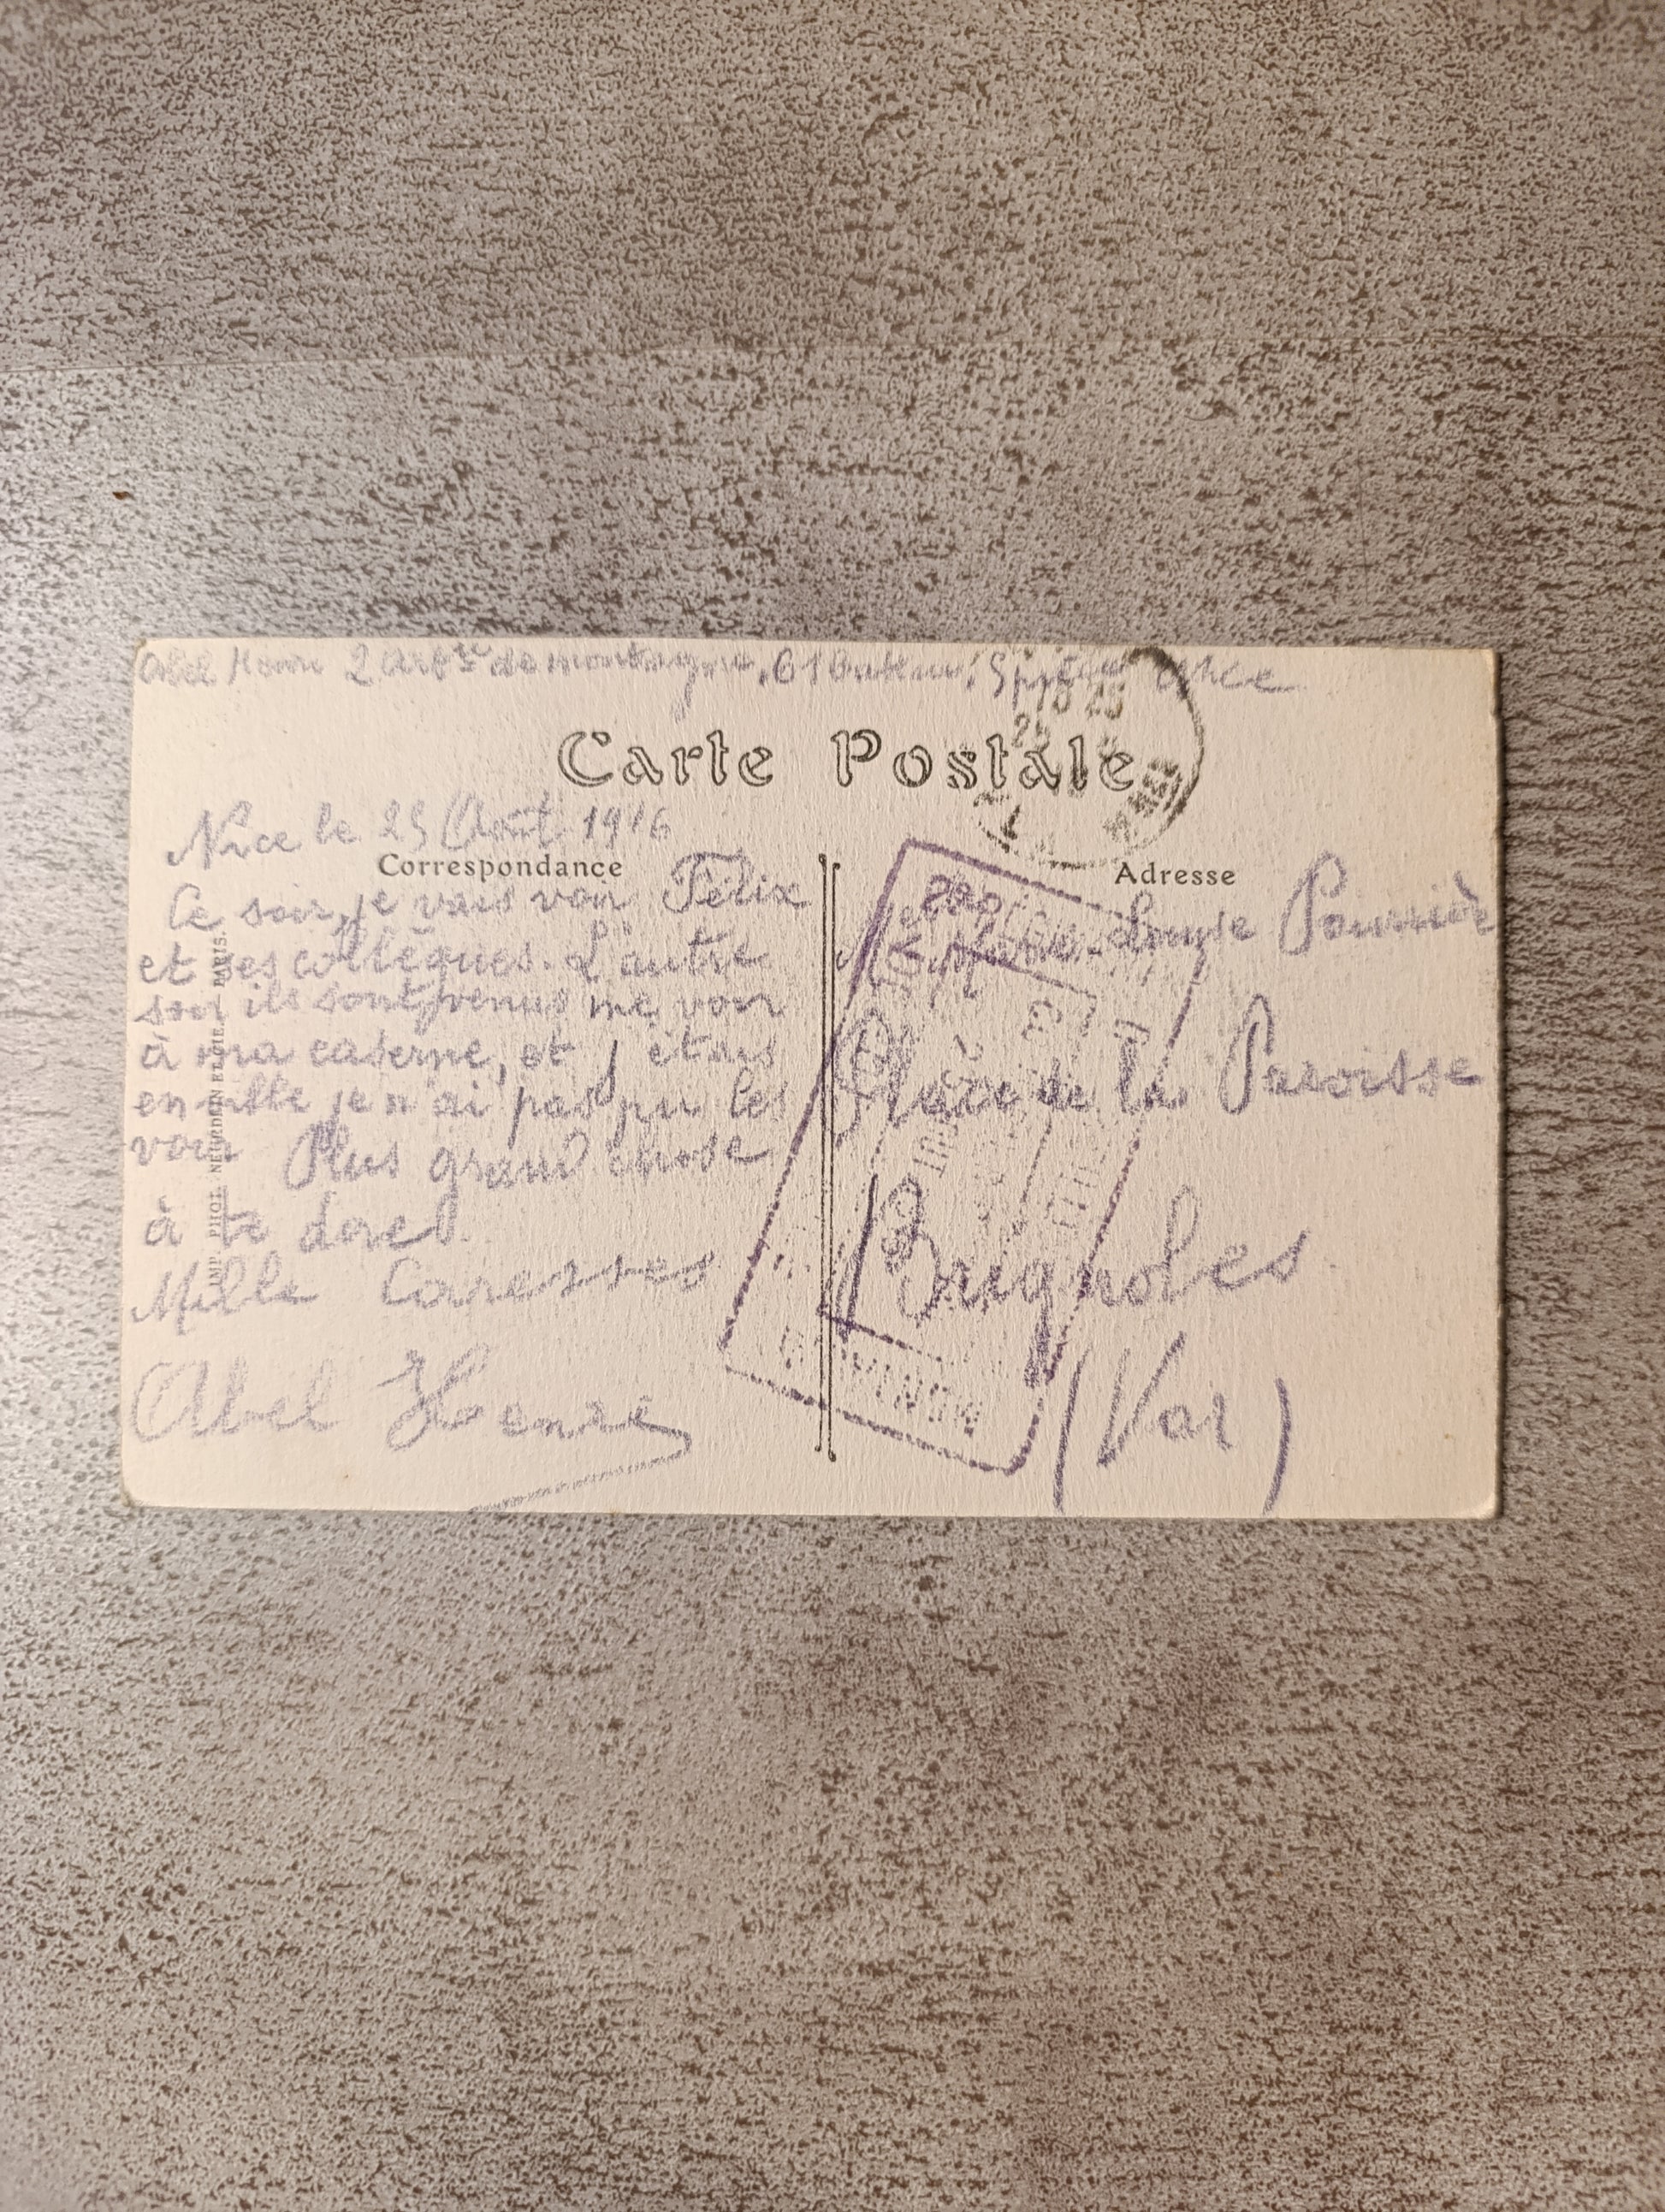 Abel Henri 2 Artie de montagne, 61 Batterie, Nice
Carte Postale
Nice le 25 Août 1916
Correspondance
Adresse
Ce soir, je vais voir Félix
et ses collègues. L'autre
soir ils sont venus me voir
à ma caserne, et j'étais
en ville je n'ai pas pu les
voir Plus grand chose
à te dire.
Mille Caresses
Abel Henri
Marie-Louise Pourrière
Place de la Paroisse
Brignoles
(Var)
IMP. PHOT. NEURDEIN ET CIE. PARIS.